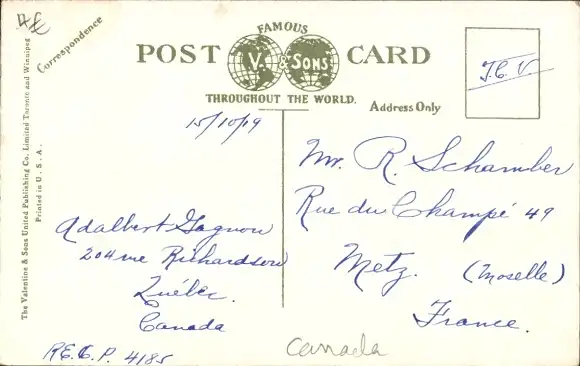 Correspondence
FAMOUS
POST CARD
V. & SONS
THROUGHOUT THE WORLD.
Address Only
T.C.V.
The Valentine & Sons United Publishing Co. Limited Toronto and Winnipeg
Printed in U. S. A.
15/10/19
Mr. R. Schamber
Rue du Champé 49
Metz. (Moselle)
France.
Adalbert Gagnon
204 rue Richardson
Québec.
Canada
R.E.C.P. 4185
Canada